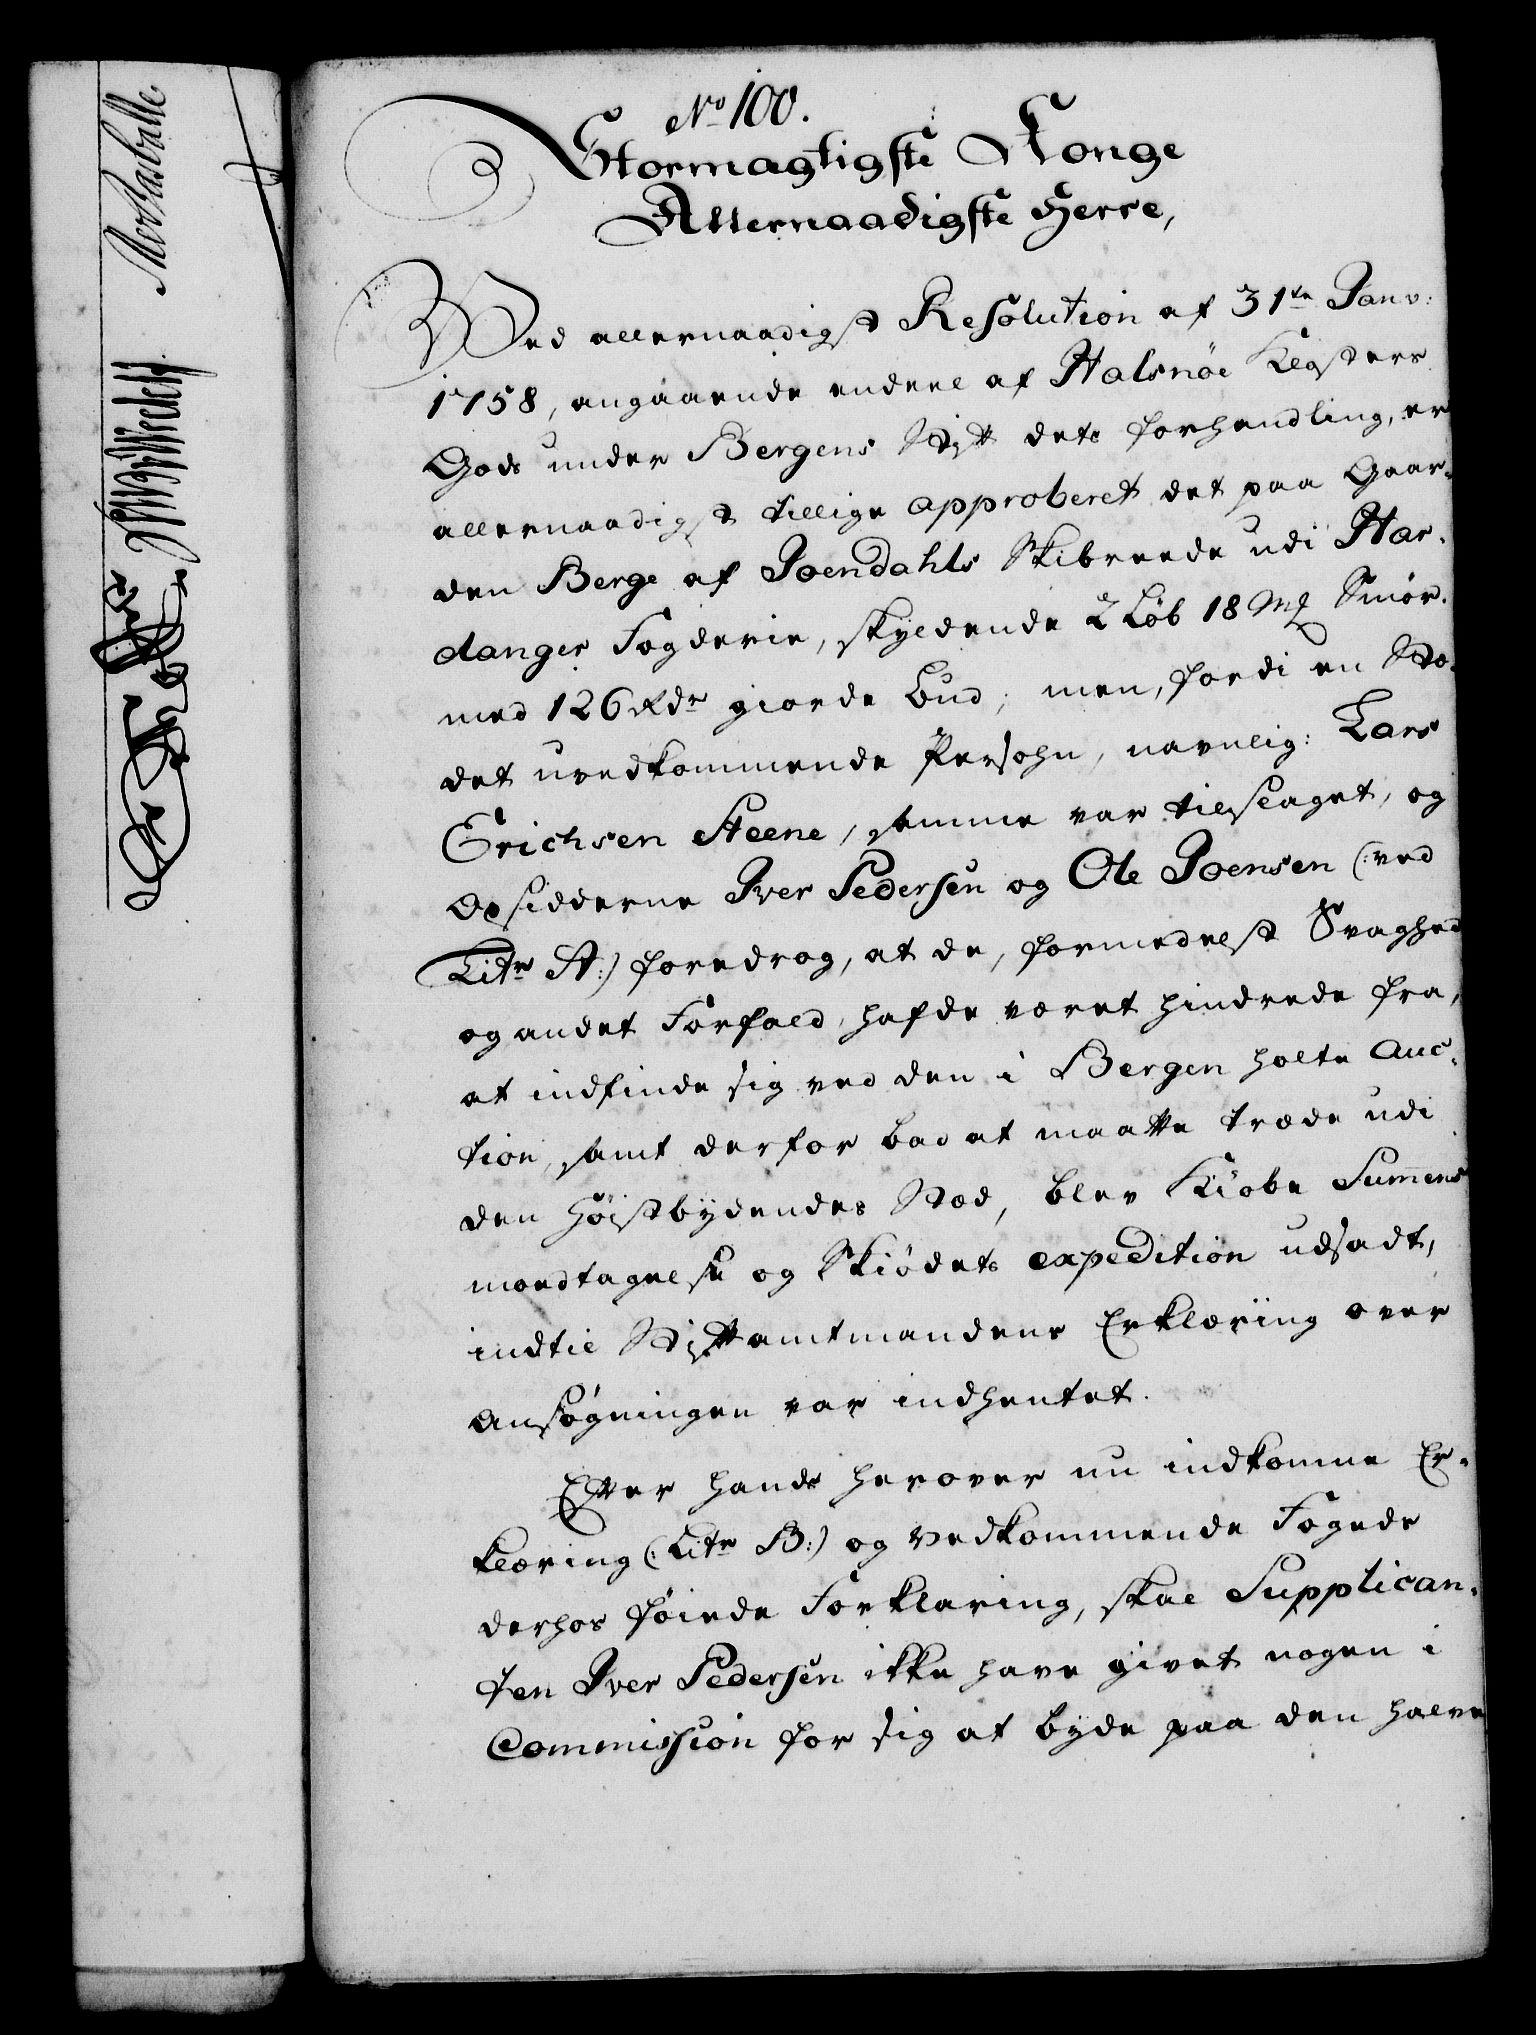 No 100.
Stormagtigste Konge
Allernaadigste Herre,
Ved allernaadigst Resolution af 31te Janv:
1758, angaaende endeel af Halsnöe Klosters
Gods under Bergens Stift dets forhandling, er
allernaadigst tillige approberet det paa Gaar-
den Berge af Joendahls Skibreede udi Har-
danger Fogderie, skyldende 2 Löb 18 Mk Smör.
med 126 Rdr giorde Bud; men, fordi en Ste-
det uvedkommende Persohn, navnlig: Lars
Erichsen Steene, samme var tilslaget, og
Opsidderne Iver Pedersen og Ole Joensen (:ved
Litr A:) foredrog, at de, formedelst Svaghed
og andet Forfald, hafde været hindrede fra,
at indfinde sig ved den i Bergen holte Auc-
tion, samt derfor bad at maatte træde udi
den Höistbydendes Sted, blev Kiöbe Summens
modtagelse og Skiödets expedition udsadt,
indtil Stiftamtmandens Erklæring over
Ansögningen var indhentet.
Efter hands herover nu indkomne Er-
klæring (:Litr B:) og vedkommende Fogeds
derhos föiede Forklaring, skal Supplican-
ten Iver Pedersen ikke have givet nogen i
Commission for sig at byde paa den halve